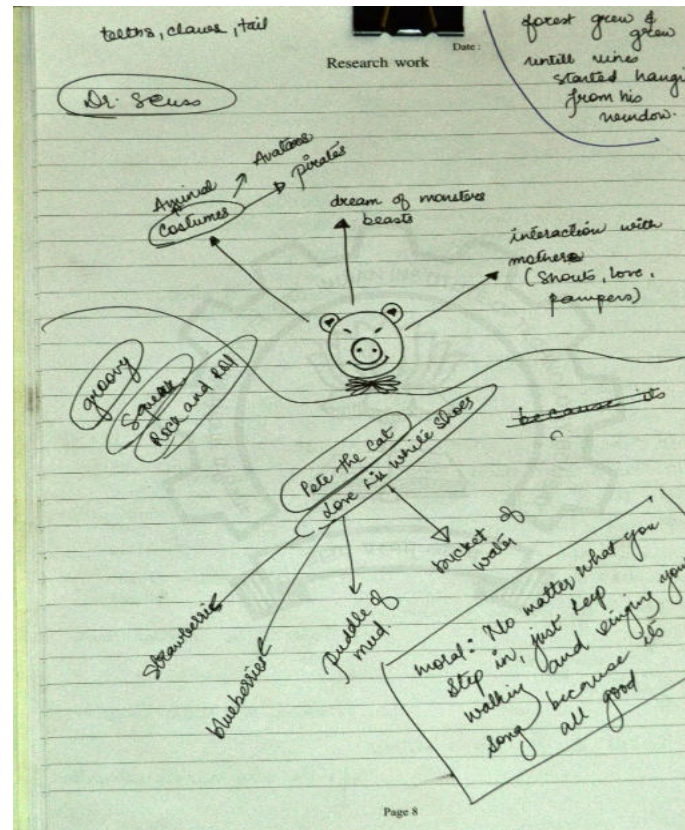 teeths, claws, tail
Date :
Research work
forest grew &
grew
untill vines
started hangi
from his
window.
Dr. Seuss
Animal
Avatars
pirates
Costumes
dream of monsters
beasts
interaction with
mothers
(shouts, love,
pampers)
groovy
Squeak
Rock and Roll
because its
Pete the Cat
Love his white shoes
bucket of
water
puddle of
mud
strawberries
blueberries
moral: No matter what you
step in, just keep
walking and singing you
song because its
all good
Page 8